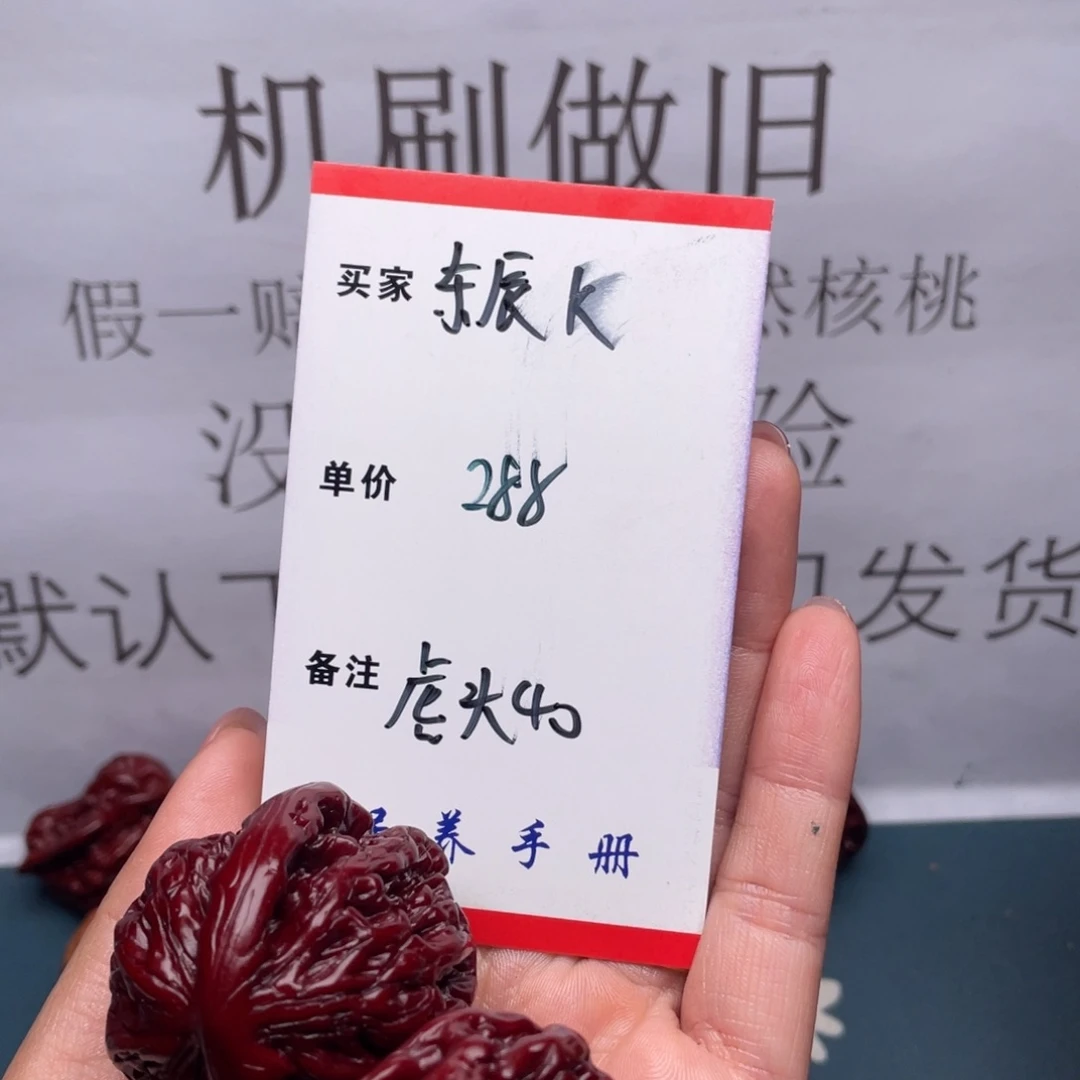 机刷做旧
假一赔 然核桃
没 险
默认 发货
买家 东辰 k
单价 288
备注 虎头40
养手册